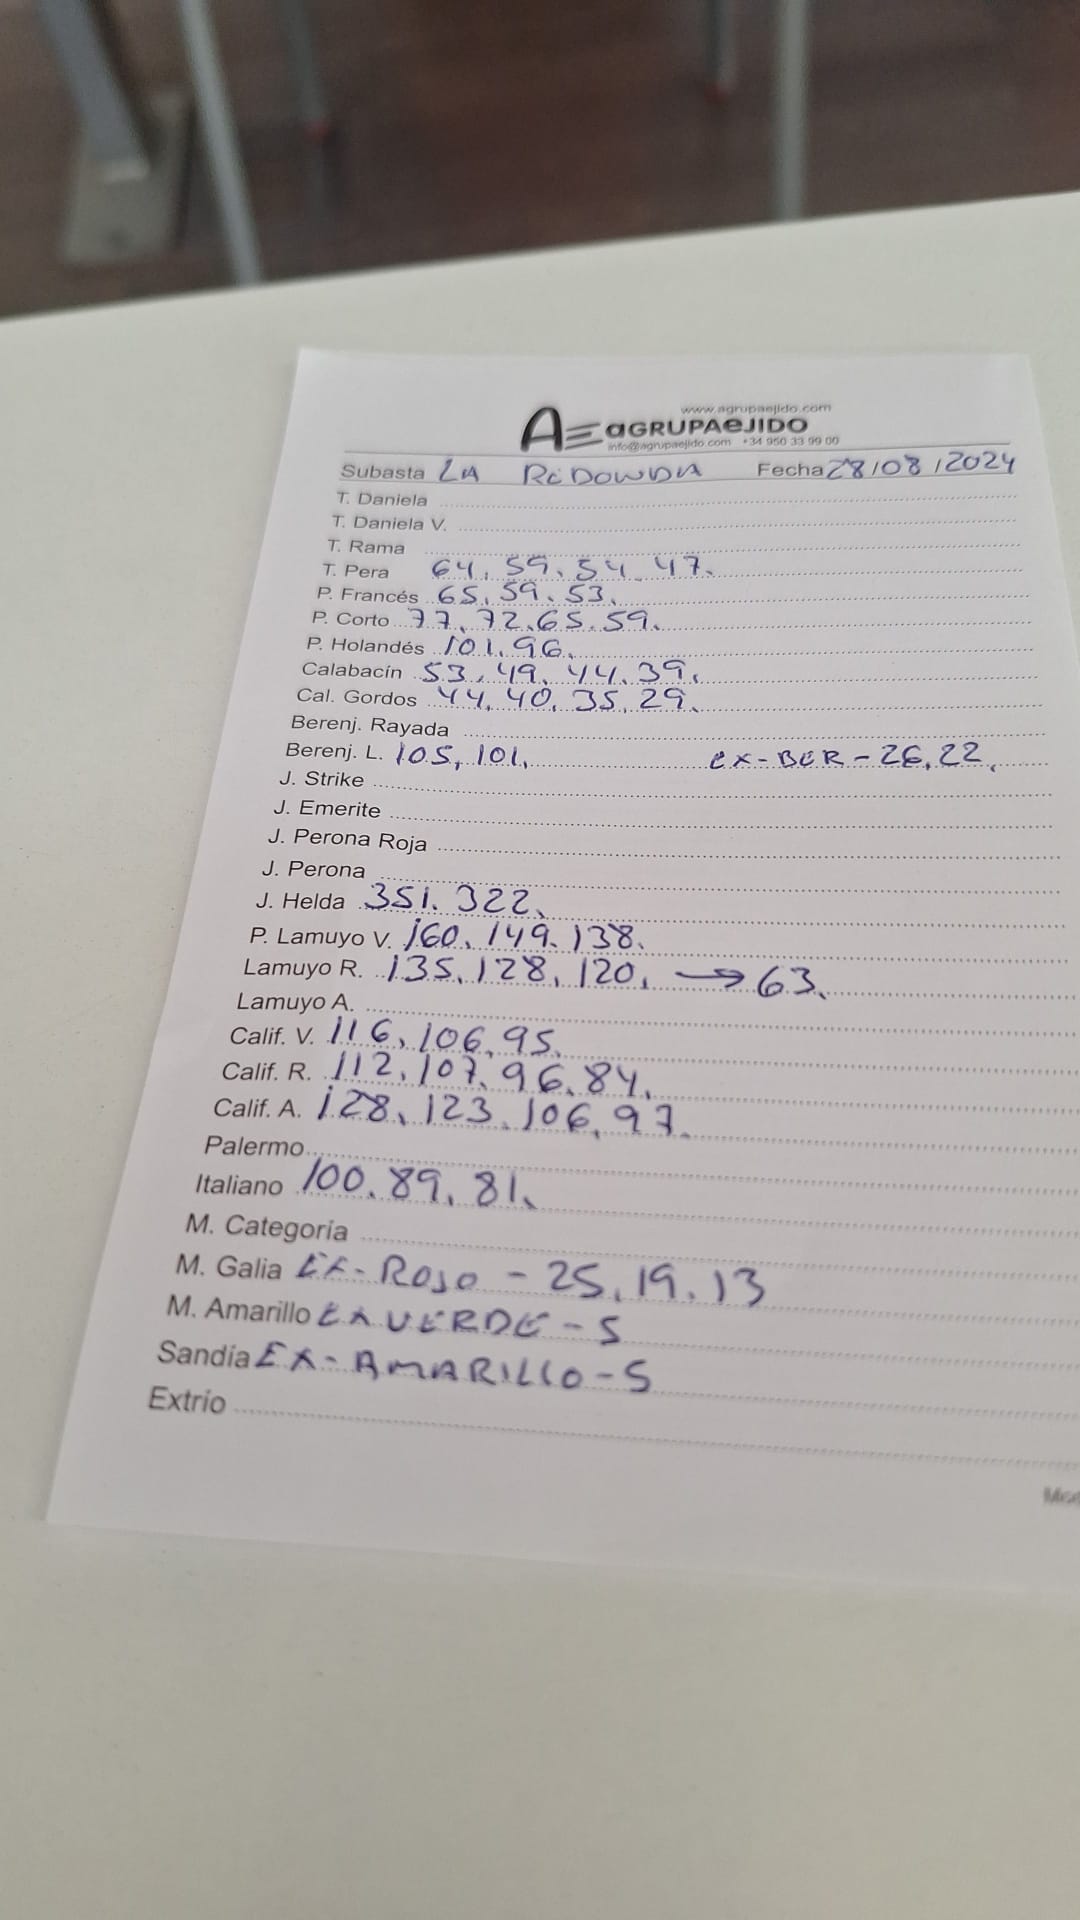 www.agrupaejido.com
AE aGRUPAeJIDO
info@agrupaejido.com +34 950 33 99 00
Subasta LA REDONDA Fecha 28/08/2024
T. Daniela
T. Daniela V.
T. Rama
T. Pera 64. 59. 54. 47.
P. Francés 65. 59. 53.
P. Corto 77. 72. 65. 59.
P. Holandés 101. 96.
Calabacín 53. 49. 44. 39.
Cal. Gordos 44. 40. 35. 29.
Berenj. Rayada
Berenj. L. 105, 101. ex-BER - 26. 22.
J. Strike
J. Emerite
J. Perona Roja
J. Perona
J. Helda 351. 322.
P. Lamuyo V. 160. 149. 138.
Lamuyo R. 135. 128. 120. → 63.
Lamuyo A.
Calif. V. 116, 106. 95.
Calif. R. 112. 107. 96. 84.
Calif. A. 128. 123. 106. 97.
Palermo
Italiano 100. 89. 81.
M. Categoría
M. Galia EX- ROJO - 25. 19. 13
M. Amarillo EX VERDE - 5
Sandía EX- AMARILLO - 5
Extrio